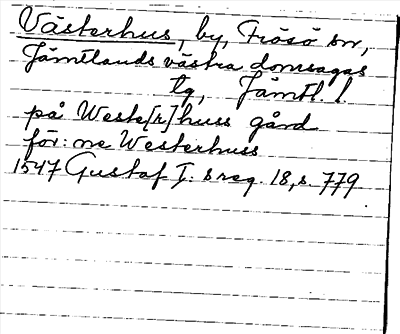 Västerhus, by, Frösö sn,
Jämtlands västra domsagas
tg, Jämtl. l.
på Weste[r]huss gård
för: ne Westerhuss
1547 Gustaf I: s reg. 18, s. 779